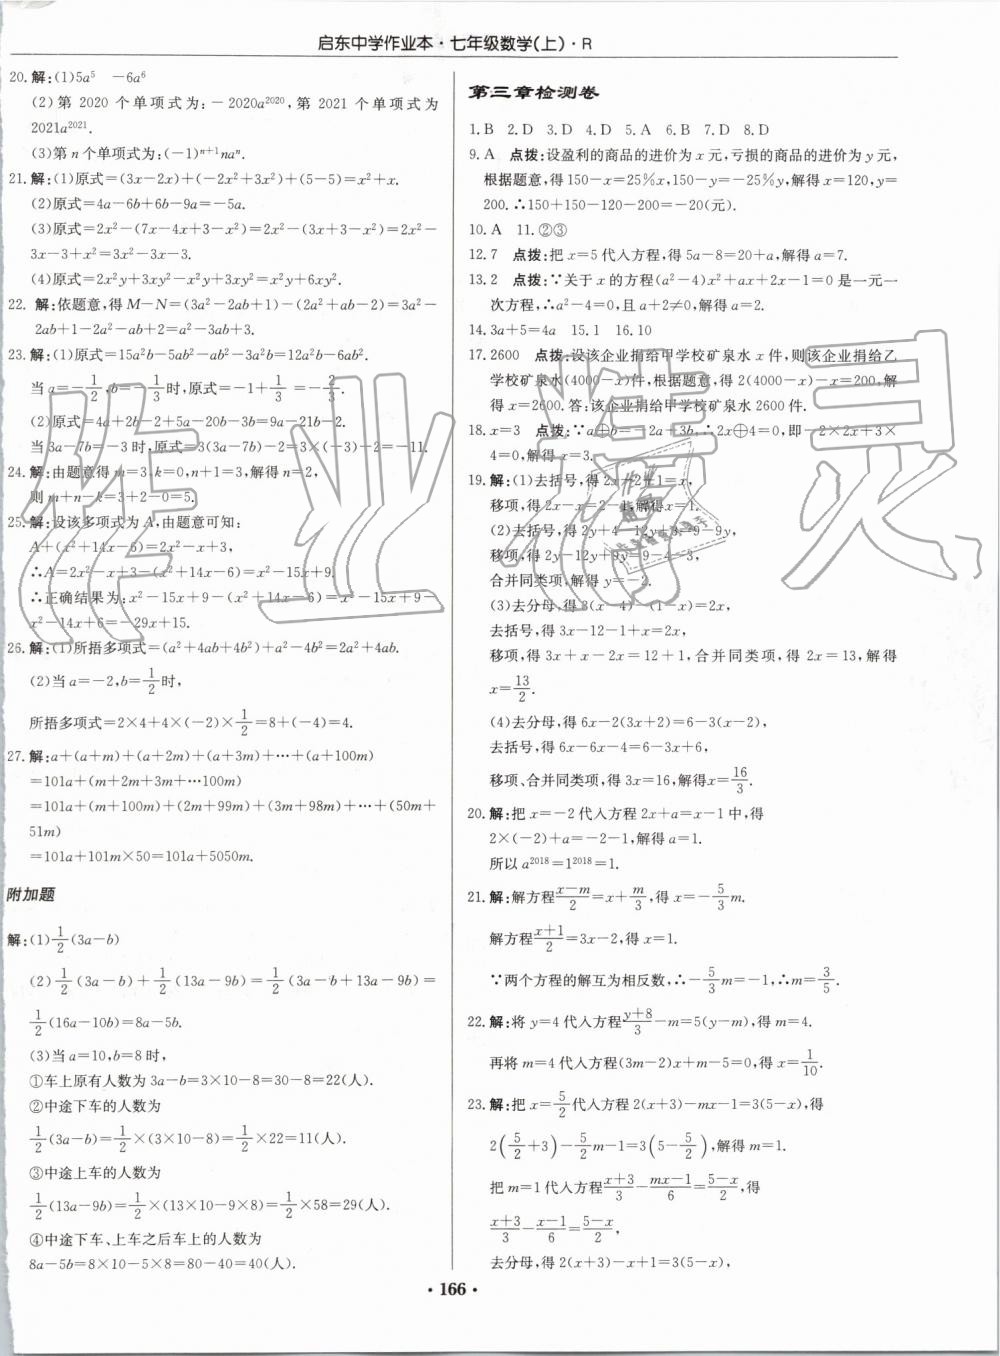 启东中学作业本·七年级数学(上)·R
20.解:(1)5a⁵ －6a⁶
(2)第 2020 个单项式为:－2020a²⁰²⁰,第 2021 个单项式为
2021a²⁰²¹.
(3)第 n 个单项式为:(－1)ⁿ⁺¹naⁿ.
21.解:(1)原式=(3x－2x)+(－2x²+3x²)+(5－5)=x²+x.
(2)原式=4a－6b+6b－9a=－5a.
(3)原式=2x²－(7x－4x+3－x²)=2x²－(3x+3－x²)=2x²－
3x－3+x²=3x²－3x－3.
(4)原式=2x²y+3xy²－x²y+3xy²=x²y+6xy².
22. 解:依题意,得 M－N=(3a²－2ab+1)－(2a²+ab－2)=3a²－
2ab+1－2a²－ab+2=a²－3ab+3.
23.解:(1)原式=15a²b－5ab²－ab²－3a²b=12a²b－6ab².
当 a=－1/2,b=1/3时,原式=－1+1/3=－2/3.
(2)原式=4a+2b－2+5a－20b－3b=9a－21b－2.
当 3a－7b=－3 时,原式=3(3a－7b)－2=3×(－3)－2=－11.
24.解:由题意得 m=3,k=0,n+1=3,解得 n=2,
则 m+n－k=3+2－0=5.
25.解:设该多项式为 A,由题意可知:
A+(x²+14x－6)=2x²－x+3,
∴A=2x²－x+3－(x²+14x－6)=x²－15x+9.
∴正确结果为:x²－15x+9－(x²+14x－6)=x²－15x+9－
x²－14x+6=－29x+15.
26.解:(1)所捂多项式=(a²+4ab+4b²)+a²－4b²=2a²+4ab.
(2)当 a=－2,b=1/2时,
所捂多项式=2×4+4×(－2)×1/2=8+(－4)=4.
27.解:a+(a+m)+(a+2m)+(a+3m)+⋯+(a+100m)
=101a+(m+2m+3m+⋯100m)
=101a+(m+100m)+(2m+99m)+(3m+98m)+⋯+(50m+
51m)
=101a+101m×50=101a+5050m.
附加题
解:(1)1/2(3a－b)
(2)1/2(3a－b)+1/2(13a－9b)=1/2(3a－b+13a－9b)=
1/2(16a－10b)=8a－5b.
(3)当 a=10,b=8 时,
①车上原有人数为 3a－b=3×10－8=30－8=22(人).
②中途下车的人数为
1/2(3a－b)=1/2×(3×10－8)=1/2×22=11(人).
③中途上车的人数为
1/2(13a－9b)=1/2×(13×10－9×8)=1/2×58=29(人).
④中途下车、上车之后车上的人数为
8a－5b=8×10－5×8=80－40=40(人).
第三章检测卷
1.B 2.D 3.D 4.D 5.A 6.B 7.D 8.D
9.A 点拨:设盈利的商品的进价为 x 元,亏损的商品的进价为 y 元,
根据题意,得 150－x=25%x,150－y=－25%y,解得 x=120,y=
200.∴150+150－120－200=－20(元).
10.A 11.②③
12.7 点拨:把 x=5 代入方程,得 5a－8=20+a,解得 a=7.
13.2 点拨:∵关于 x 的方程(a²－4)x²+ax+2x－1=0 是一元一
次方程,∴a²－4=0,且 a+2≠0,解得 a=2.
14.3a+5=4a 15.1 16.10
17.2600 点拨:设该企业捐给甲学校矿泉水 x 件,则该企业捐给乙
学校矿泉水(4000－x)件,根据题意,得 2(4000－x)－x=200,解
得 x=2600.答:该企业捐给甲学校矿泉水 2600 件.
18.x=3 点拨:∵a⊕b=－2a+3b,∴2x⊕4=0,即－2×2x+3×
4=0,解得 x=3.
19.解:(1)去括号,得 2x－2+1=x,
移项,得 2x－x=2－1,解得 x=1.
(2)去括号,得 2y+4－12y+3=9－9y,
移项,得 2y－12y+9y=9－4－3,
合并同类项,解得 y=－2.
(3)去分母,得 3(x－4)－(1－x)=2x,
去括号,得 3x－12－1+x=2x,
移项,得 3x+x－2x=12+1,合并同类项,得 2x=13,解得
x=13/2.
(4)去分母,得 6x－2(3x+2)=6－3(x－2),
去括号,得 6x－6x－4=6－3x+6,
移项、合并同类项,得 3x=16,解得x=16/3.
20.解:把 x=－2 代入方程 2x+a=x－1 中,得
2×(－2)+a=－2－1,解得 a=1.
所以 a²⁰¹⁸=1²⁰¹⁸=1.
21.解:解方程(x－m)/2=x+m/3,得 x=－5/3m.
解方程(x+1)/2=3x－2,得 x=1.
∵两个方程的解互为相反数,∴－5/3m=－1,∴m=3/5.
22.解:将 y=4 代入方程(y+8)/3－m=5(y－m),得 m=4.
再将 m=4 代入方程(3m－2)x+m－5=0,得 x=1/10.
23.解:把 x=5/2代入方程 2(x+3)－mx－1=3(5－x),得
2(5/2+3)－5/2m－1=3(5－5/2),解得 m=1.
把 m=1 代入方程(x+3)/3－(mx－1)/6=(5－x)/2,得
(x+3)/3－(x－1)/6=(5－x)/2,
去分母,得 2(x+3)－x+1=3(5－x),
·166·
作业精灵